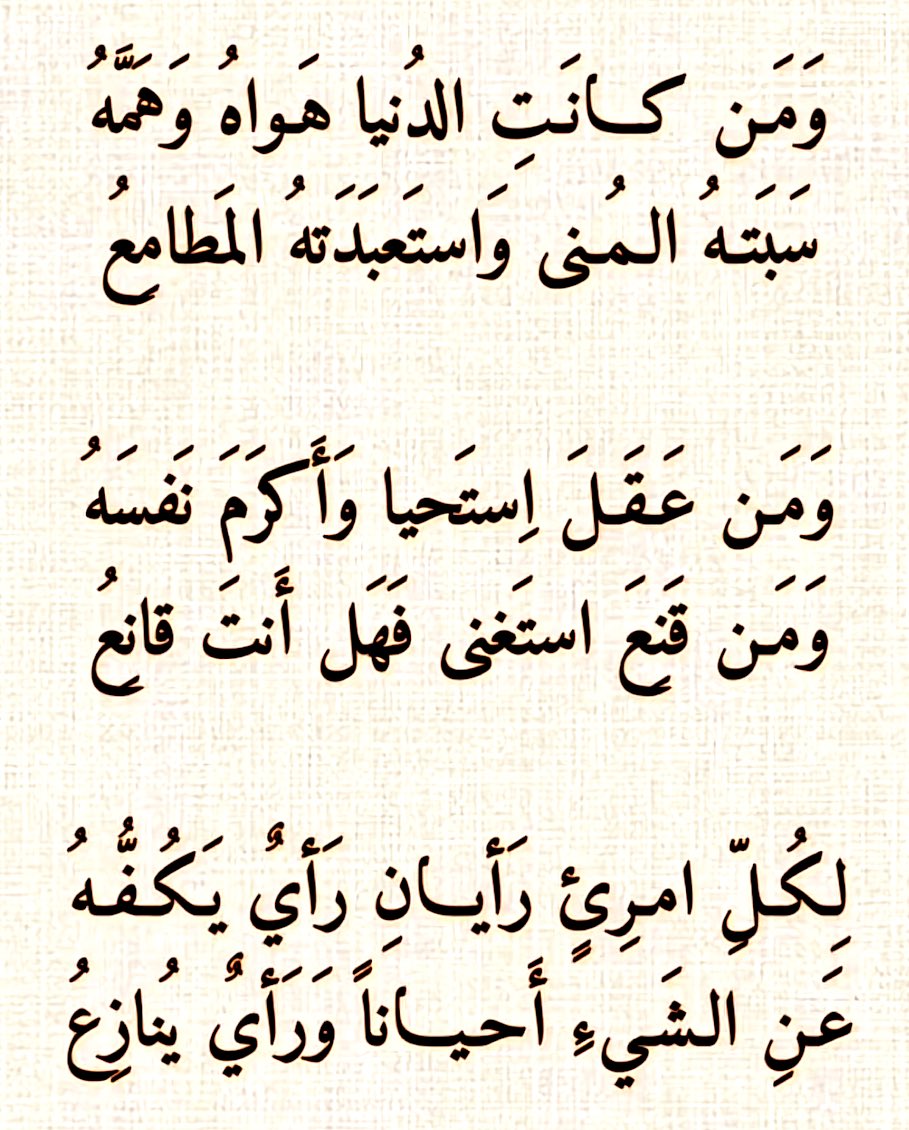 وَمَن كـانَتِ الدُنيا هَـواهُ وَهَمَّهُ
سَبَتـهُ الـمُـنى وَاستَعبَدَتهُ المَطامِعُ
وَمَـن عَـقَـلَ اِستَحيا وَأَكرَمَ نَفسَهُ
وَمَـن قَنِعَ استَغنى فَهَل أَنتَ قانِعُ
لِكُـلِّ امـرِئٍ رَأيـانِ رَأيٌ يَـكُـفُّـهُ
عَنِ الـشَيءِ أَحيـاناً وَرَأيٌ يُنازِعُ